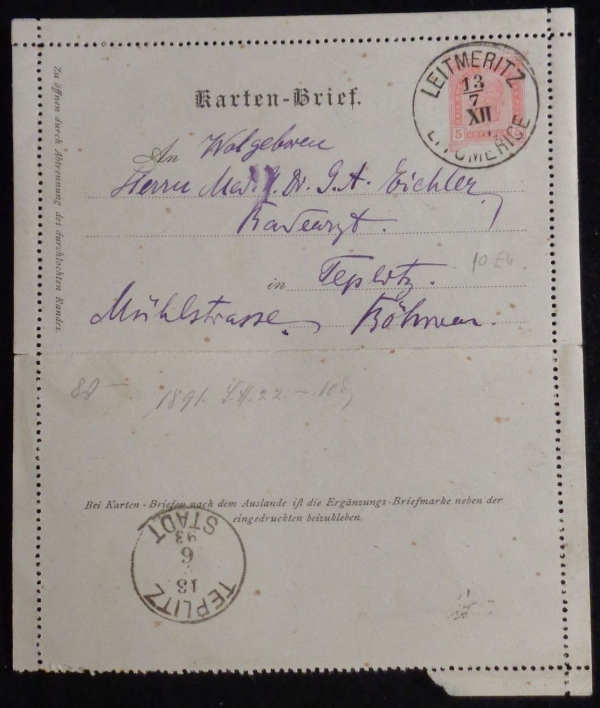 Karten-Brief.
LEITMERITZ
13
7
XII
LITOMĚŘICE
5
An Wolgeboren
Herrn Med. Dr. G. A. Eichler
Badearzt.
in Teplitz.
Mühlstrasse. Böhmen.
10 E4
Zu öffnen durch Abtrennung des durchlochten Randes.
80 —
1891.
Bei Karten-Briefen nach dem Auslande ist die Ergänzungs-Briefmarke neben der
eingedruckten beizukleben.
TEPLITZ
13
6
93
STADT